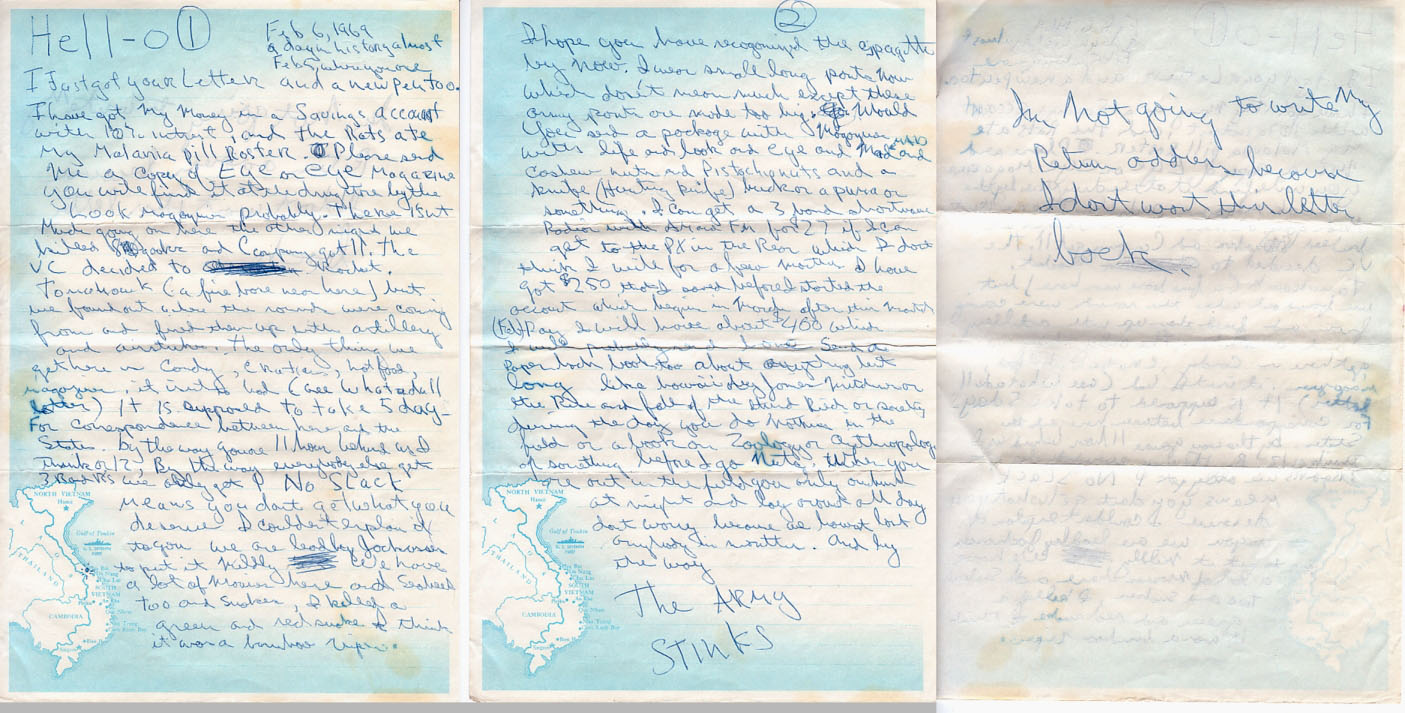 Hell-o 1
Feb 6, 1969
a day in history almost
Feb 5 when you are
I Just got your Letter and a new pen too.
I have got My Money in a Savings account
with 10% intrest, and the Rats ate
My Malaria pill Roster. Please send
Me a copy of EYE or eye Magazine
you will find it at the drug store by the
Look Magazine probably. There isnt
Much going on here the other night we
killed 8 and C company got 11. The
VC decided to Rocket.
Tomahawk (a fire base near here) but
we found out where the rounds were coming
from and them up with artillery
and airstrikes. The only thing we
get here is Candy, hot food,
magazines, it isnt to bad (see what a dull
letter) It is supposed to take 5 days
For Correspondence between here and the
States. By the way youre 11 hours behind us I
think or 12? By the way everybody else gets
3 we only got 1 No SLACK
Means you dont get what you
deserve I couldn't explain it
to you we are
to put it Mildly We have
a lot of here and
too and snakes, I killed a
green and red snake I think
it was a bamboo viper.
NORTH VIETNAM
Hanoi
Gulf of Tonkin
LAOS
THAILAND
SOUTH VIETNAM
CAMBODIA
Saigon
2
I hope you have recognized the
by now. I wear small long pants now
which dont mean much except these
army pants are made too big. Would
you send a package with Magazines
with life and look and eye and Mad and
Cashew nuts and Pistachio nuts and a
knife (Hunting knife) buck or a puma or
something. I can get a 3 band shortwave
Radio FM for 27 if I can
get to the PX in the Rear which I dont
think I will for a few months. I have
got $250 that I saved before I started the
account which begin in March after this months
(Feb) Pay I will have about $400 which
I will probably send home Send a
paper back book too about anything but
long like hawaii by James Mitchner or
the Rise and fall of the third Reich or
during the day you do nothing in the
field or a book on Zoology or Anthropology
or something before I go Nuts. When you
are out in the field you only
at night and lay around all day
dont worry because we havent lost
anybody in . And by
the way
THE ARMY
STINKS
NORTH VIETNAM
Hanoi
Gulf of Tonkin
LAOS
THAILAND
SOUTH VIETNAM
CAMBODIA
Saigon
Im Not going to write My
Return address because
I dont want this letter
back.